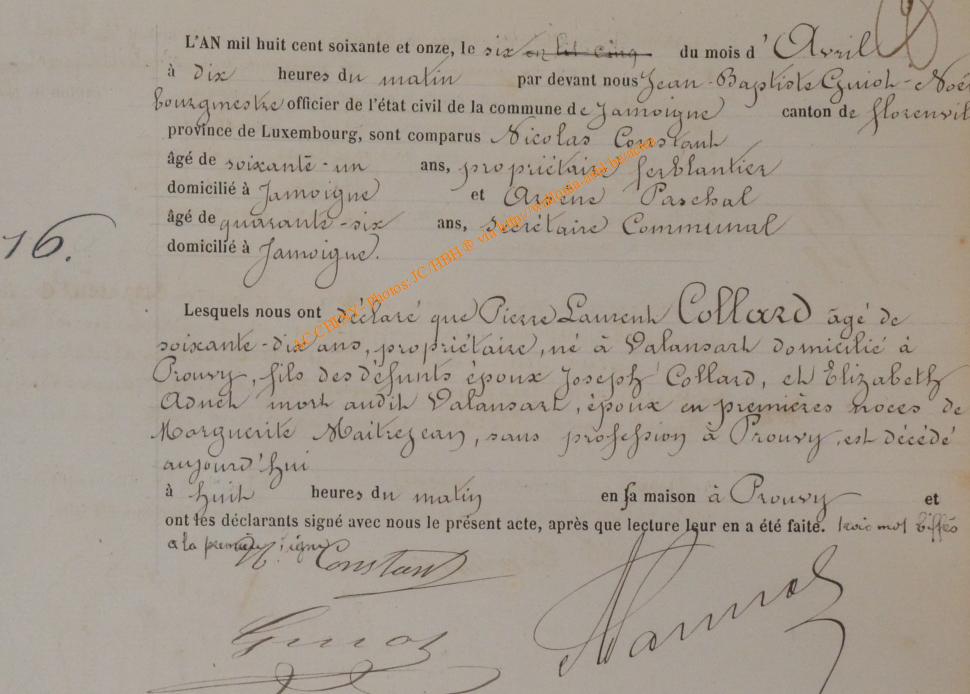 L'AN mil huit cent soixante et onze, le six en lit cinq du mois d' Avril
à dix heures du matin par devant nous Jean-Baptiste Guiot-Noël
bourgmestre officier de l'état civil de la commune de Jamoigne canton de florenvil
province de Luxembourg, sont comparus Nicolas Constant
âgé de soixante-un ans, propriétaire ferblantier
domicilié à Jamoigne et Arsène Paschal
âgé de quarante-six ans, secrétaire Communal
16.
domicilié à Jamoigne.
Lesquels nous ont déclaré que Pierre Laurent Collard âgé de
soixante-dix ans, propriétaire, né à Valansart domicilié à
Prouvy, fils des défunts époux Joseph Collard, et Elizabeth
Adnet mort audit Valansart, époux en premières noces de
Marguerite Maitrejean, sans profession à Prouvy, est décédé
aujourd'hui
à huit heures du matin en sa maison à Prouvy et
ont les déclarants signé avec nous le présent acte, après que lecture leur en a été faite. trois mot biffés
a la première ligne
N. Constant
Guiot
AC CHINY - Photos: JC HBH ® via http://